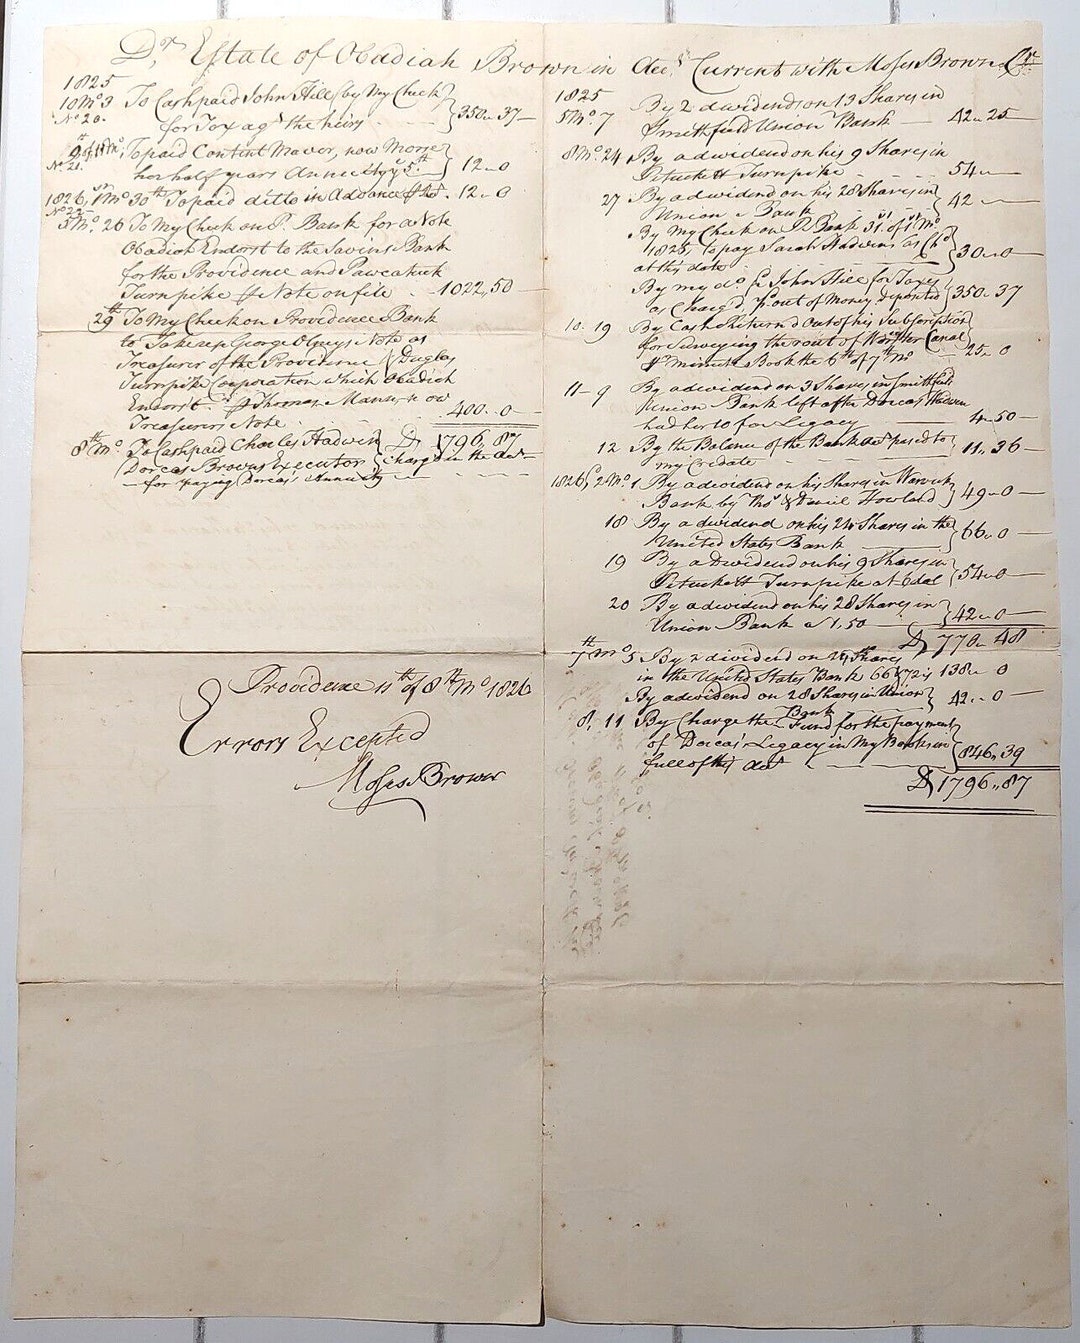 Dr. Estate of Obadiah Brown in Acct. Current with Moses Brown Cr.
1825
10 Mo 3 To Cash paid John Hill by my Check } 350 „ 37
No 20. for Tax agt the heirs
9th of 11 Mo To paid Content Mavor, now Morre }
No. 21. her half years Annuity 5th } 12 „ 0
1826, 1st Mo 30th To paid ditto in Advance 12 „ 0
No 22
5 Mo. 26 To My Check on P. Bank for a Note
Obadiah Endorst to the Savins Bank
for the Providence and Pawcatuck
Turnpike Note on file 1022,50
29th To My Check on Providence Bank
to Take up George Note as
Treasurer of the Providence & Duglas
Turnpike Corporation which Obadiah
Endorst. Thomas now
Treasurers Note 400 „ 0
8th Mo. To Cash paid Charles Hadwin } D 1796 „ 87
Dorcas Browns Executor } charg'd in the Act
for paying Dorcas Annuity
Providence 11th of 8th Mo 1826
Errors Excepted
Moses Brown
1825
5 Mo. 7 By 2 dividends on 13 Shares in
Smithfield Union Bank 42 „ 25
8 Mo. 24 By a dividend on his 9 Shares in
Petuckett Turnpike 54
27 By a dividend on his 28 Shares in } 42
Union Bank
By My Check on P. Bank 31st of 1st Mo
1825, to pay Sarah Hadwens as Chd } 30 „ 0
at this date
By my do. to John Hill for Taxes
as Charg'd out of Money deposited } 350 „ 37
10. 19 By Cash Return'd out of his Subscription
for Surveying the rout of Canal
Minute Book the 6th of 7th Mo 25 „ 0
11 - 9 By a dividend on 3 Shares in Smithfield
Union Bank left after Dorcas Hadwin
had her 10 for Legacy 4 „ 50
12 By the Balance of the Bank Act pased to
my Credate 11 „ 36
1826, 2 Mo 1 By a dividend on his Shares in Warwick
Bank by Thos & Daniel Howland } 49 „ 0
18 By a dividend on his 24 Shares in the
United States Bank } 66 „ 0
19 By a Dividend on his 9 Shares in
Petuckett Turnpike at 6 dol } 54 „ 0
20 By a dividend on his 28 Shares in
Union Bank a 1,50 } 42 „ 0
D 770 „ 48
7th Mo 5 By 2 dividend on 24 Shares
in the United States Bank 66 & 72 is 138 „ 0
By a dividend on 28 Shares in Union } 42 „ 0
Bank
8, 11 By Charge the Fund for the payment
of Dorcas Legacy in My Books in } 846 „ 39
full of this Act
D 1796 „ 87